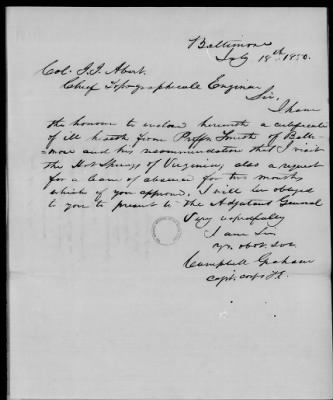 Baltimore
July 18th 1850.
Col. J. J. Abert.
Chief Topographicale Engineer
Sir,
I have
the honour to enclose herewith a certificate
of ill health from Professr Smith of Balti-
more and his recommendation that I visit
the Hot Springs of Virginia; also a request
for a leave of absence for two months
which if you approve, I will be obliged
to you to present to the Adjutant General
Very respectfully
I am Sir
yr. obdt. svt.
Campbell Graham
Capt. corps T.E.